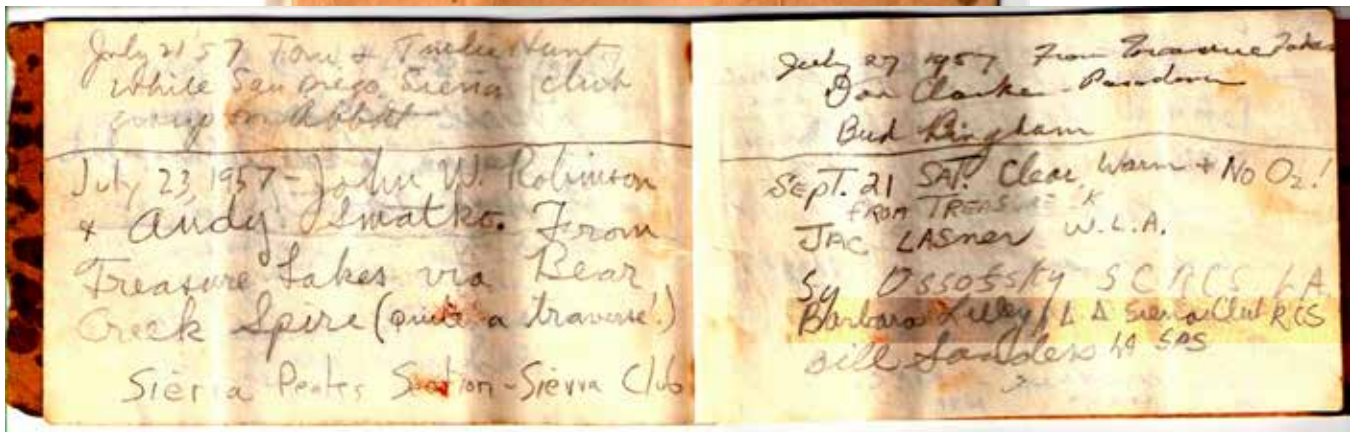 July 21 '57 Tom & Trudie Hunt
while San Diego Sierra club
group on Abbott
July 23, 1957 - John W. Robinson
& Andy Smatko. From
Treasure Lakes via Bear
Creek Spire (quite a traverse!)
Sierra Peaks Section - Sierra Club
July 27 1957 From Treasure Lakes
Don Clarke - Pasadena
Bud Bingham
Sept. 21 SAT. Clear, Warm & No O2!
FROM TREASURE
JAC LASner W.L.A.
Sy Ossofsky S C RCS LA
Barbara Lilley, L A Sierra Club RCS
Bill Sanders LA SPS